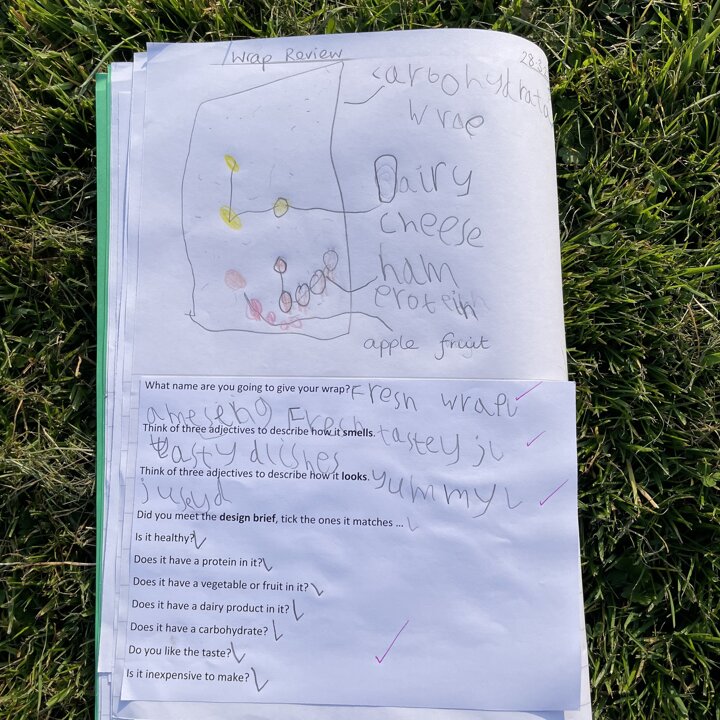 Wrap Review
28.3.
carbohydrata
Wrap
Dairy
cheese
ham
protein
apple fruit
What name are you going to give your wrap? Fresh wrap
ameseing Fresh
Think of three adjectives to describe how it smells. tastey
tasty dlishes
Think of three adjectives to describe how it looks. yummy
juseyd
Did you meet the design brief, tick the ones it matches ...
Is it healthy?
Does it have a protein in it?
Does it have a vegetable or fruit in it?
Does it have a dairy product in it?
Does it have a carbohydrate?
Do you like the taste?
Is it inexpensive to make?